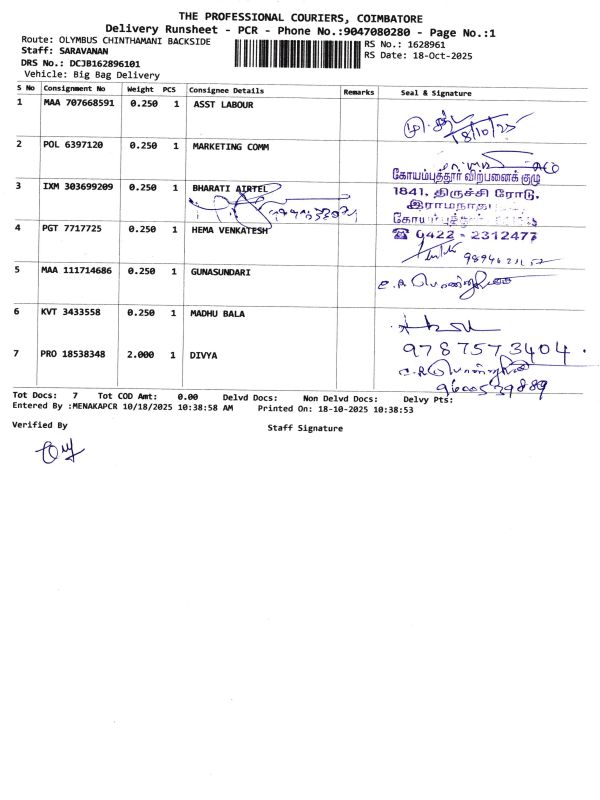 THE PROFESSIONAL COURIERS, COIMBATORE
Delivery Runsheet - PCR - Phone No.:9047080280 - Page No.:1
Route: OLYMBUS CHINTHAMANI BACKSIDE
RS No.: 1628961
Staff: SARAVANAN
RS Date: 18-Oct-2025
DRS No.: DCJB162896101
Vehicle: Big Bag Delivery
S No Consignment No Weight PCS Consignee Details Remarks Seal & Signature
1 MAA 707668591 0.250 1 ASST LABOUR
18/10/25
2 POL 6397120 0.250 1 MARKETING COMM
கோயம்புத்தூர் விற்பனைக் குழு
3 IXM 303699209 0.250 1 BHARATI AIRTEL
1841, திருச்சி ரோடு,
இராமநாத
4 PGT 7717725 0.250 1 HEMA VENKATESH
☎ 0422 - 2312477
5 MAA 111714686 0.250 1 GUNASUNDARI
6 KVT 3433558 0.250 1 MADHU BALA
9787573404
7 PRO 18538348 2.000 1 DIVYA
9600539889
Tot Docs: 7 Tot COD Amt: 0.00 Delvd Docs: Non Delvd Docs: Delvy Pts:
Entered By :MENAKAPCR 10/18/2025 10:38:58 AM Printed On: 18-10-2025 10:38:53
Verified By
Staff Signature